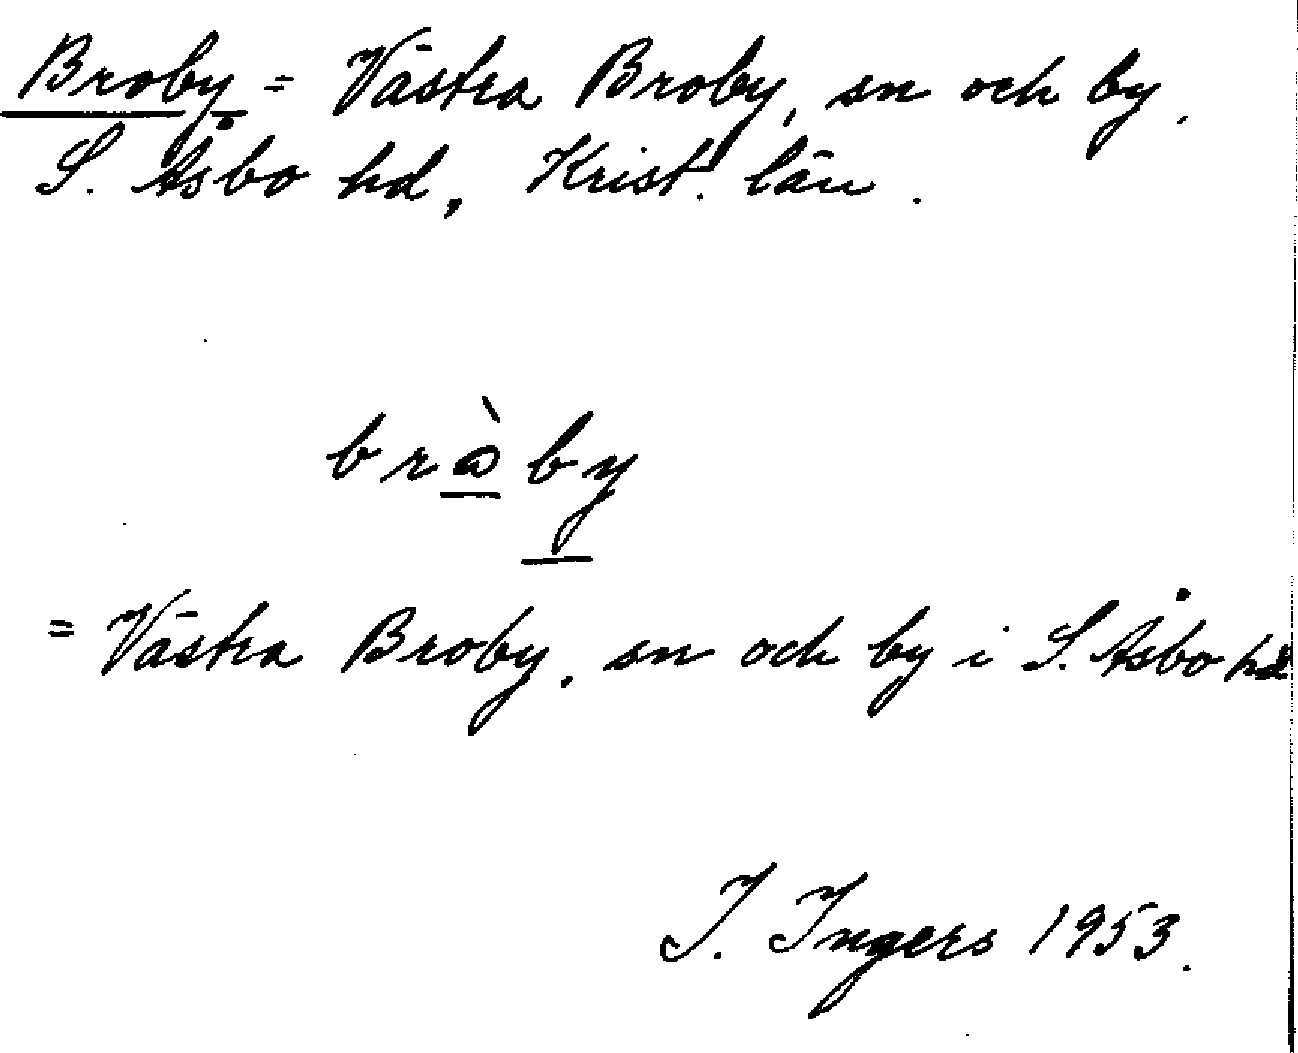 Broby = Västra Broby, sn och by,
S. Åsbo hd, Krist. län.
bròby
= Västra Broby, sn och by i S. Åsbo hd
I. Ingers 1953.